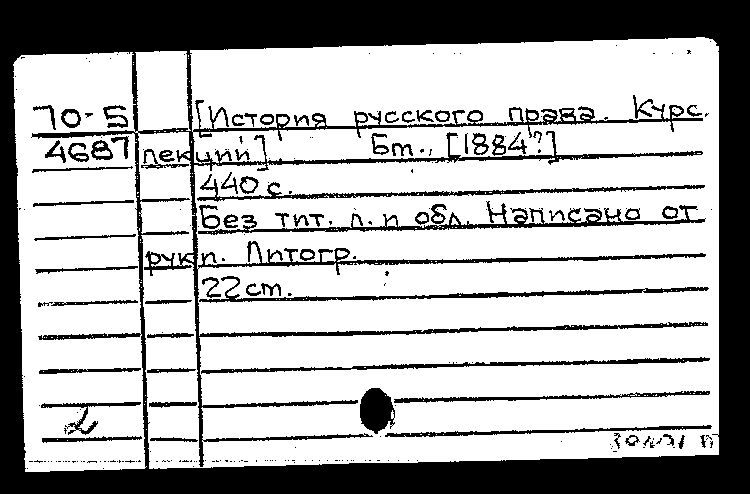 70-5 [История русского права. Курс.
4687 лекций]. Б.т., [1884?]
440 с.
Без тит. л. и обл. Написано от
рукп. Литогр.
22 cm.
2